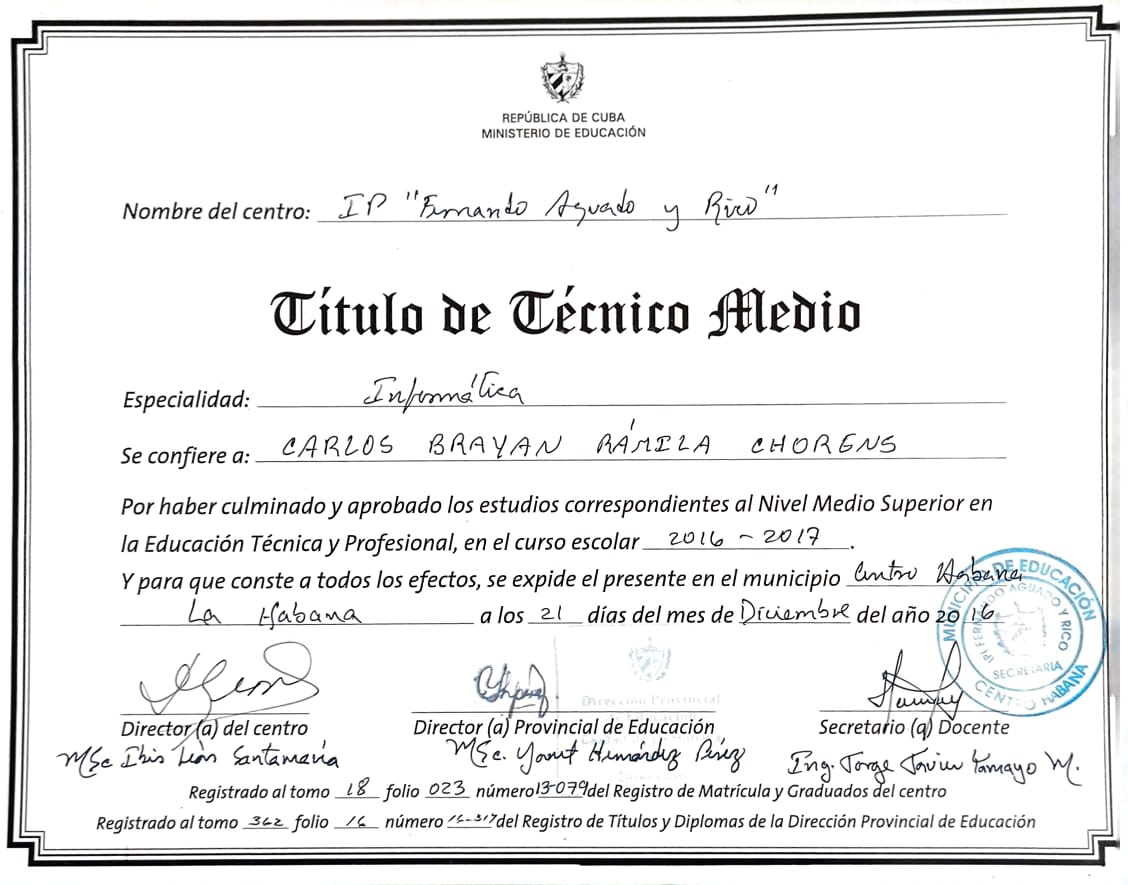 REPÚBLICA DE CUBA
MINISTERIO DE EDUCACIÓN
Nombre del centro: IP "Fernando Aguado y Rico"
Título de Técnico Medio
Especialidad: Informática
Se confiere a: CARLOS BRAYAN RÁMILA CHORENS
Por haber culminado y aprobado los estudios correspondientes al Nivel Medio Superior en
la Educación Técnica y Profesional, en el curso escolar 2016 - 2017.
Y para que conste a todos los efectos, se expide el presente en el municipio Centro Habana
La Habana a los 21 días del mes de Diciembre del año 2016
MUNICIPIO DE EDUCACIÓN
IPI FERNANDO AGUADO Y RICO
SECRETARIA
CENTRO HABANA
Dirección Provincial
Director (a) del centro Director (a) Provincial de Educación Secretario (a) Docente
MSc Ibis León Santamaría MSc. Yanet Hernández Pérez Ing. Jorge Javier Tamayo M.
Registrado al tomo 18 folio 023 número 13-079 del Registro de Matrícula y Graduados del centro
Registrado al tomo 362 folio 16 número del Registro de Títulos y Diplomas de la Dirección Provincial de Educación